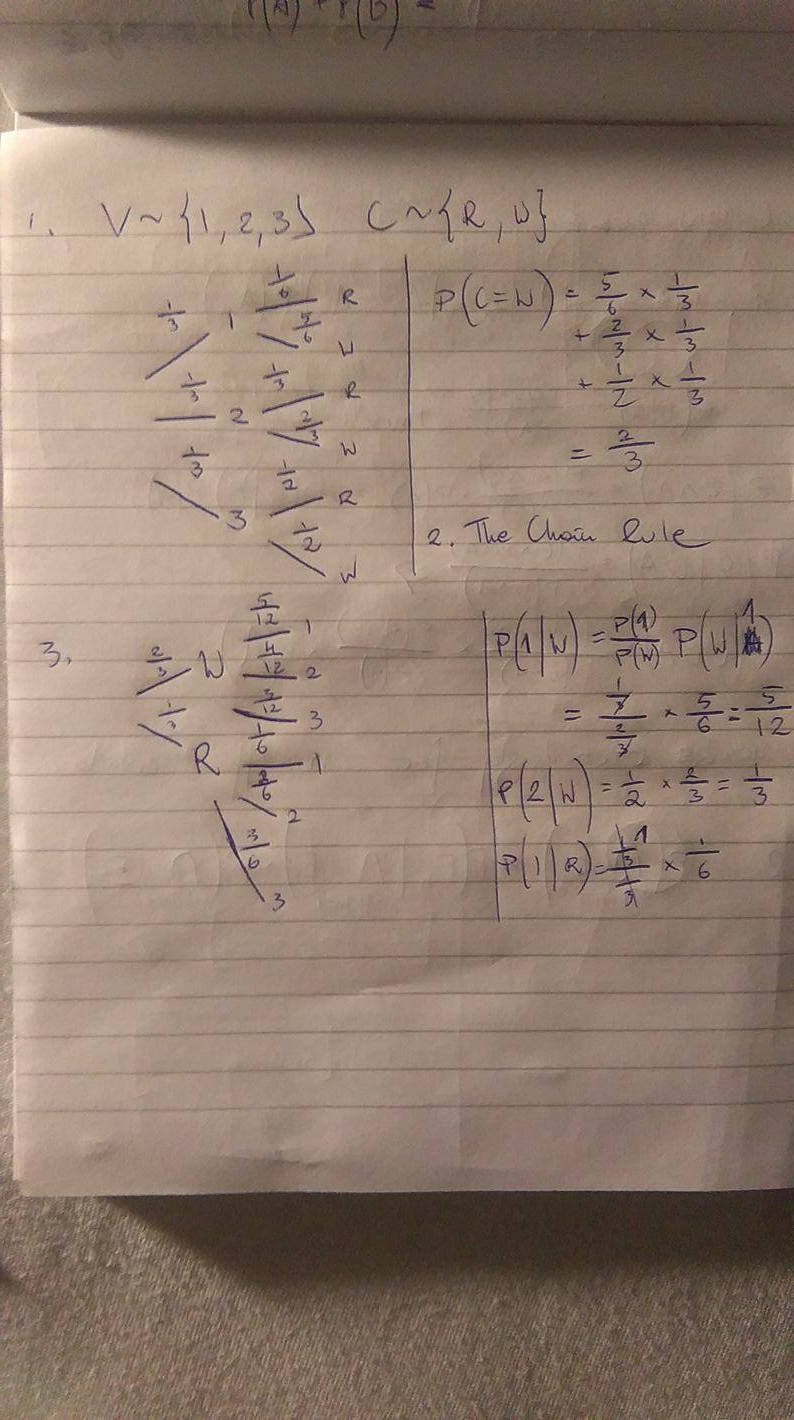 P(A) + P(B) =
1. V ~ {1, 2, 3} C ~ {R, W}
1/3 1 1/6 R
5/6 W
1/3 2 1/3 R
2/3 W
1/3 3 1/2 R
1/2 W
P(C=W) = 5/6 × 1/3
+ 2/3 × 1/3
+ 1/2 × 1/3
= 2/3
2. The Chain Rule
3. 2/3 W 5/12 1
4/12 2
3/12 3
1/3 R 1/6 1
2/6 2
3/6 3
P(1|W) = P(1)/P(W) P(W|1)
= (1/3)/(2/3) × 5/6 = 5/12
P(2|W) = 1/2 × 2/3 = 1/3
P(1|R) = (1/3)/(1/3) 1 × 1/6